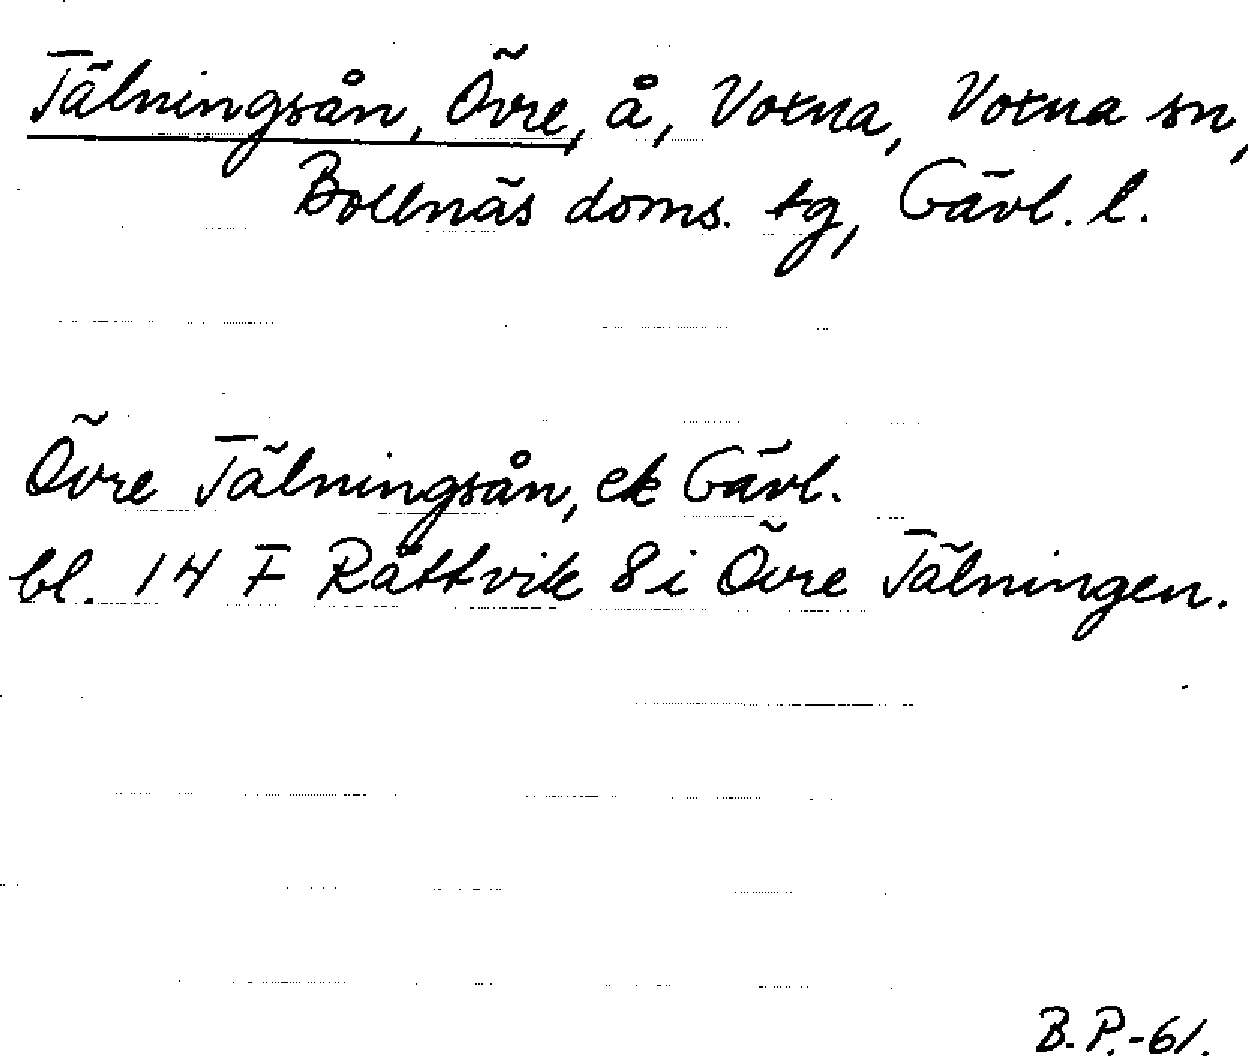 Tälningsån, Övre, å, Voxna, Voxna sn,
Bollnäs doms. tg, Gävl. l.
Övre Tälningsån, ek Gävl.
bl. 14 F Rättvik 8i Övre Tälningen.
B.P.-61.